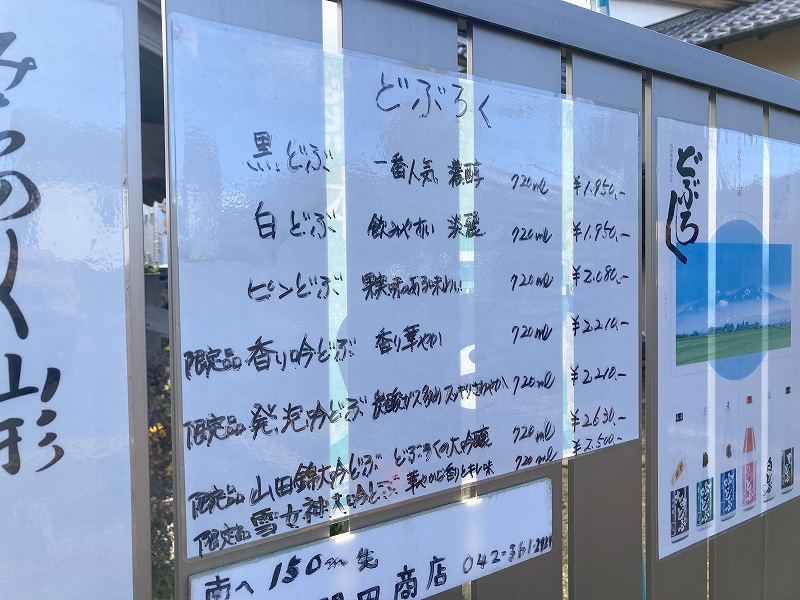 みちのく山形
どぶろく
黒どぶ 一番人気 濃醇 720ml ¥1.950.-
白どぶ 飲みやすい 淡麗 720ml ¥1.950.-
ピンどぶ 果実味のある味わい 720ml ¥2.080.-
限定品 香り吟どぶ 香り華やか 720ml ¥2.210.-
限定品 発泡吟どぶ 炭酸ガス多め スッキリさわやか 720ml ¥2.210.-
限定品 山田錦大吟どぶ どぶろくの大吟醸 720ml ¥2.630.-
限定品 雪女神大吟どぶ 華やかな香りとキレ味 720ml ¥2.500.-
南へ150m先
商店 042-361-2924
どぶろく